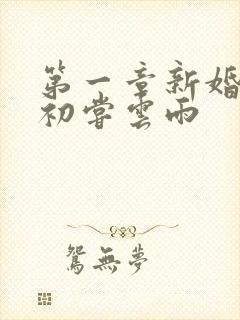 第一章新婚
初嘗雲雨
鴛無夢